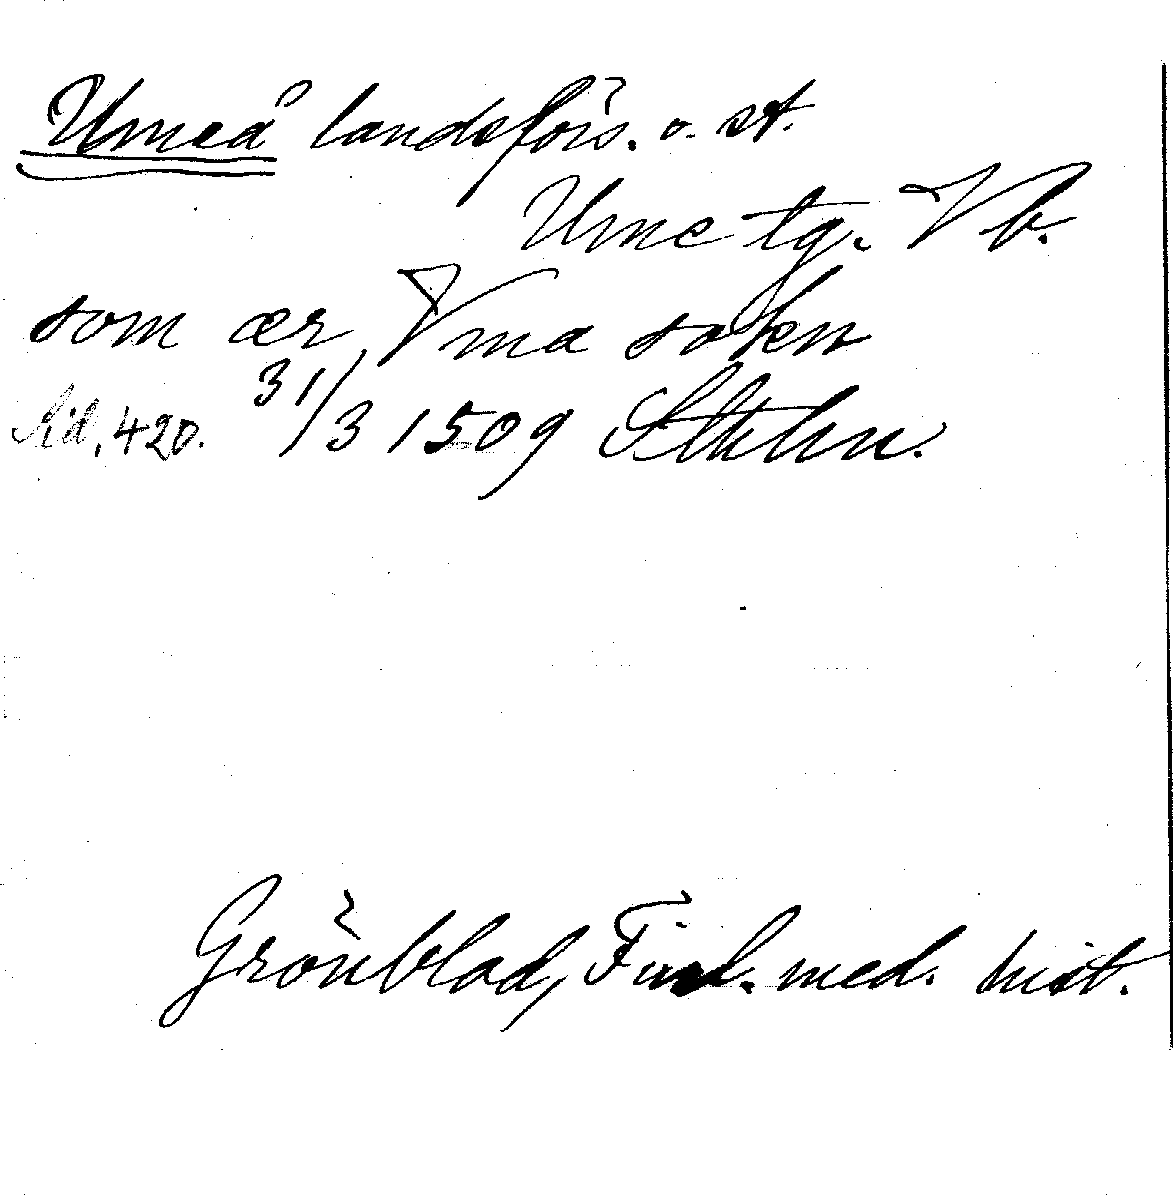 Umeå landsförs. o. st.
Ume tg. Vb.
som ær Vma sokn
Sid. 420. 31/3 1509 Sthlm.
Grönblad, Finl. med. hist.